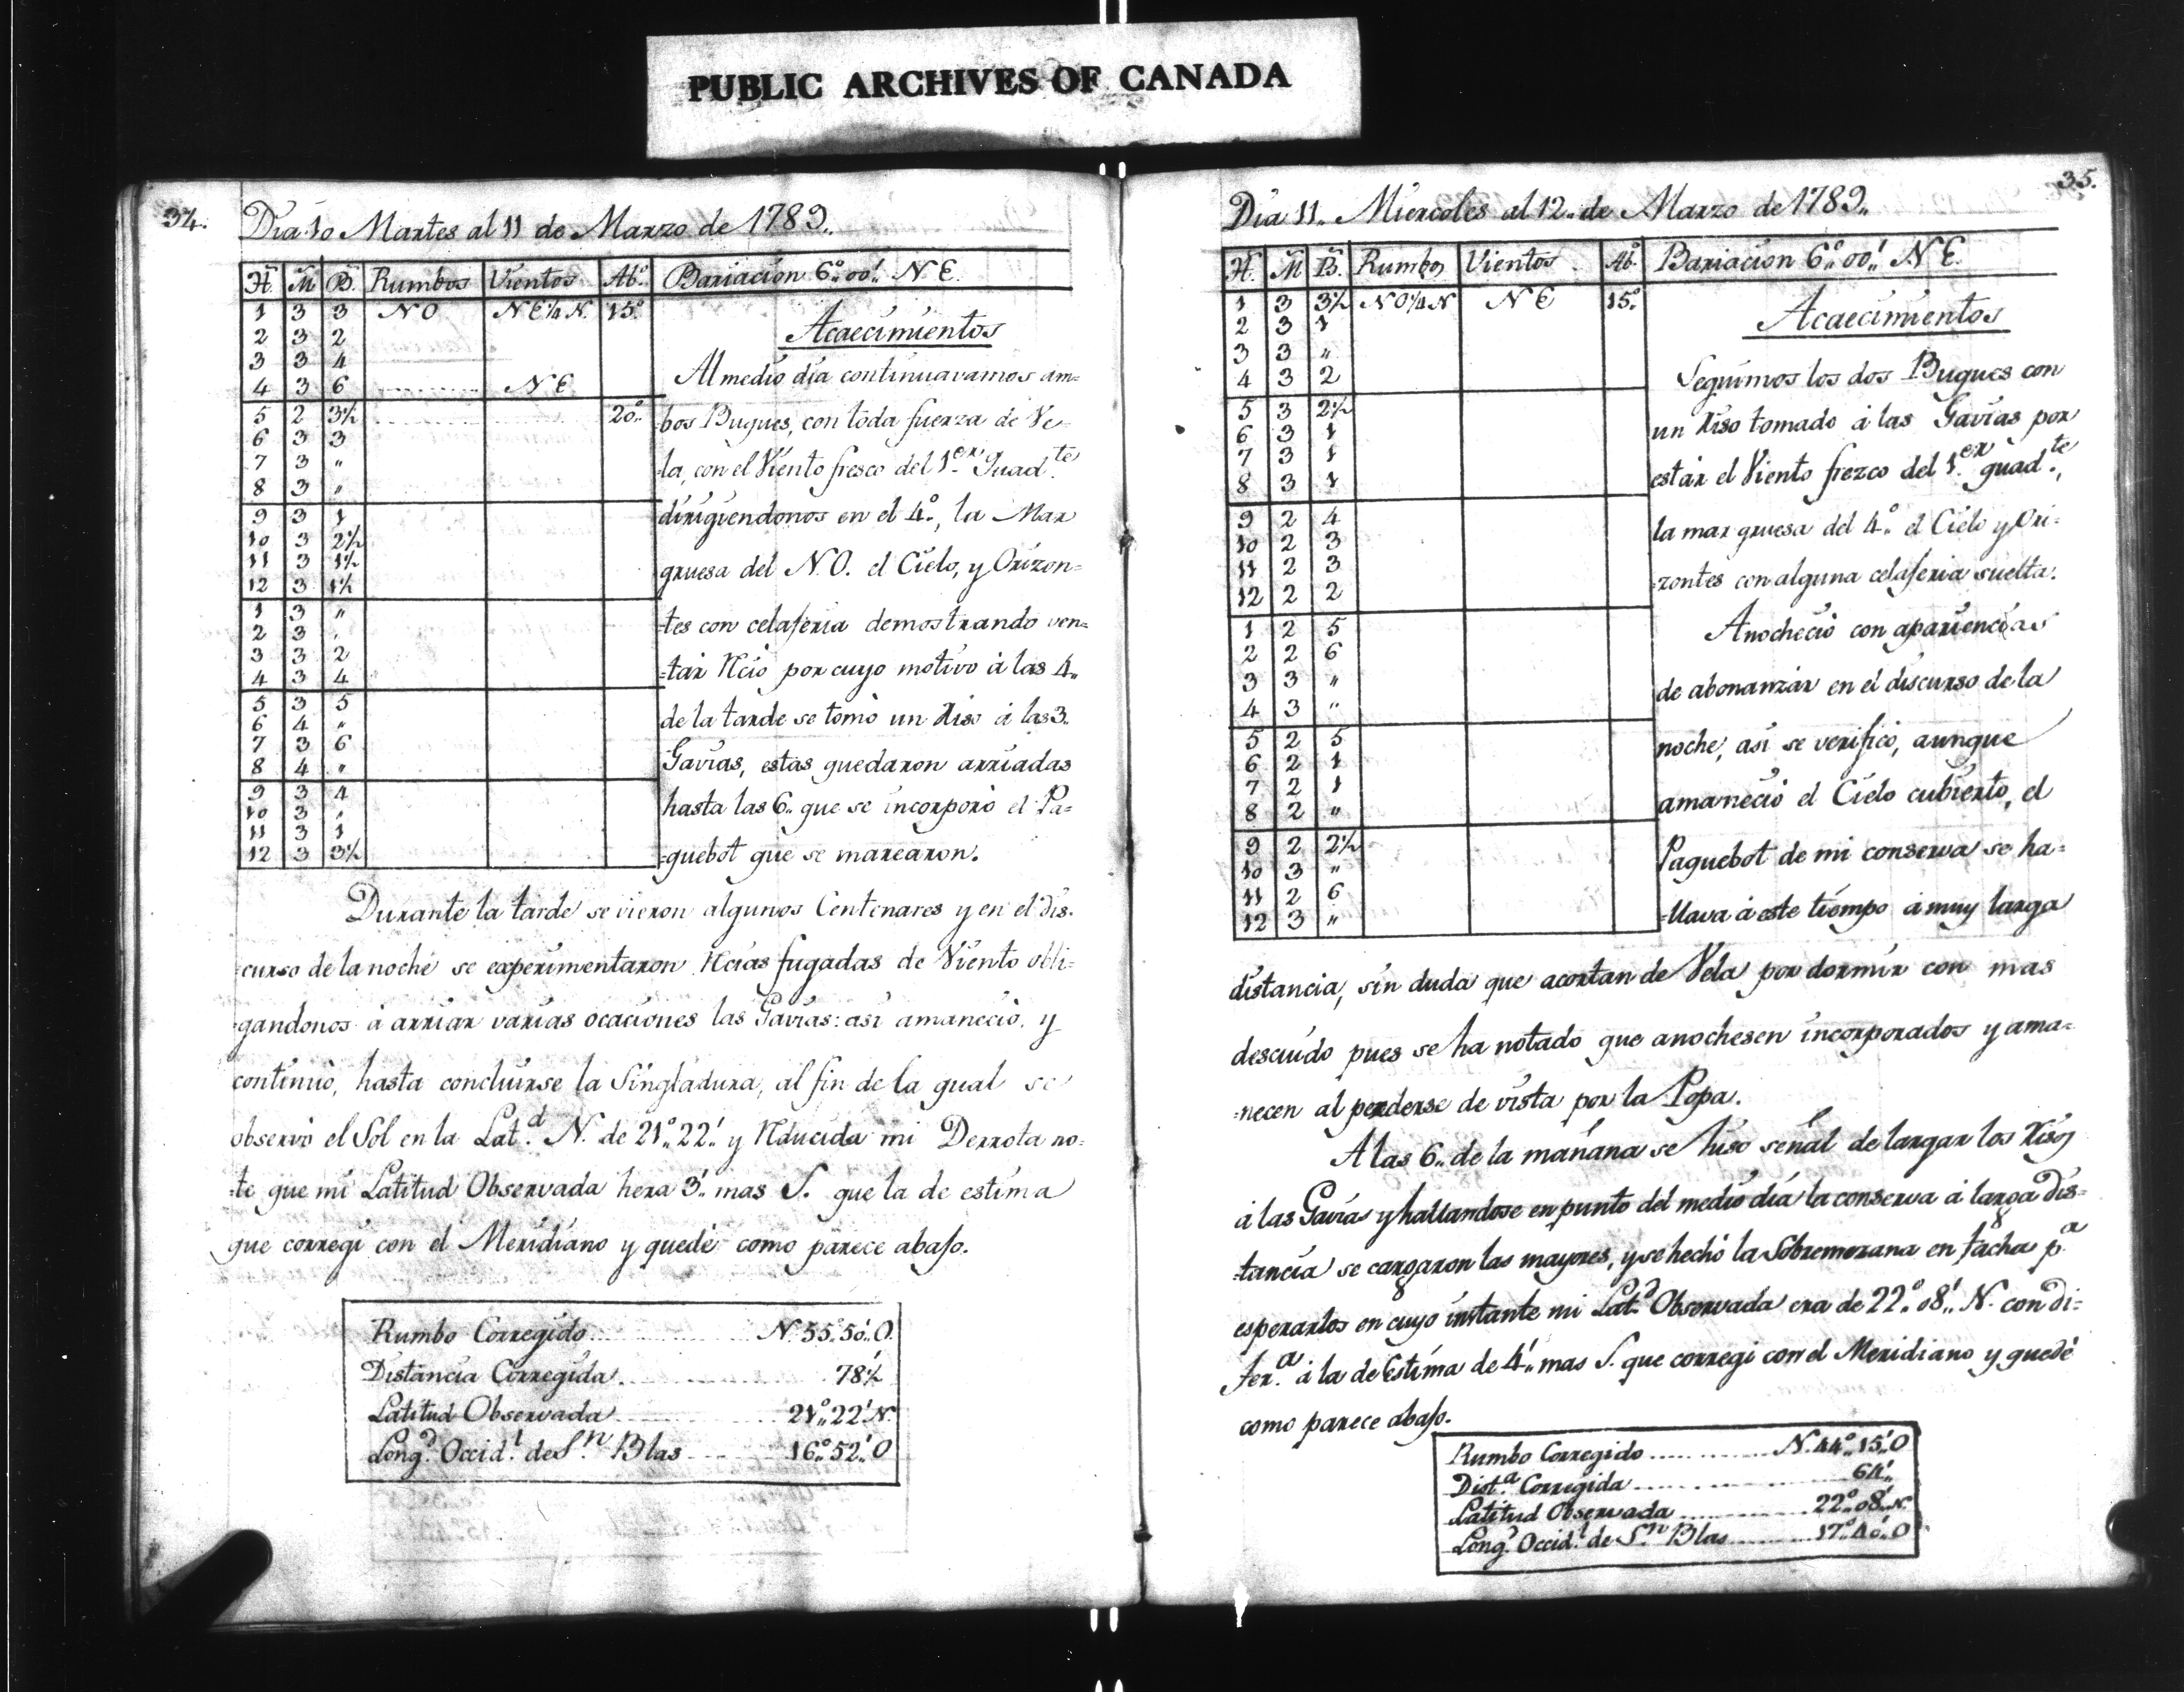 PUBLIC ARCHIVES OF CANADA
34.
Dia 10 Martes al 11 de Marzo de 1789..
H. M B. Rumbos Vientos Abº Bariacion 6º.. 00'.. N E.
1 3 3 NO NE¼N. 15º
2 3 2
3 3 4
4 3 6 ........... NE
5 2 3½ ........... 20º..
6 3 3
7 3 "
8 3 "
9 3 1
10 3 2½
11 3 1½
12 3 1½
1 3 "
2 3 "
3 3 2
4 3 4
5 3 5
6 4 "
7 3 6
8 4 "
9 3 4
10 3 "
11 3 1
12 3 3½
Acaecimientos
Al medio dia continuavamos am=
bos Buques, con toda fuerza de Ve-
la, con el Viento fresco del 1.er Quad.te
dirigiendonos en el 4º.., la Mar
gruesa del N.O. el Cielo, y Orizon=
=tes con celaferia demostrando ven=
=tar Rcio por cuyo motivo á las 4..
de la tarde se tomò un Riso à las 3.
Gavias, estas quedaron arriadas
hasta las 6.. que se incorporò el Pa=
=quebot que se marearon.
Durante la tarde se vieron algunos Centenares y en el dis-
=curso de la noche se experimentaron Rcias fugadas de Viento obli=
=gandonos à arriar varias ocaciones las Gavias: asi amaneciò, y
continuò, hasta concluirse la Singladura, al fin de la qual se
observò el Sol en la Lat.d N. de 21º.. 22'.. y Rducida mi Derrota no=
=te que mi Latitud Observada hera 3'.. mas S. que la de estima
que corregi con el Meridiano y quedè como parece abajo.
Rumbo Corregido ........... N. 55.. 50'.. O.
Distancia Corregida ........... 78'½
Latitud Observada ........... 21º.. 22'.. N.
Long.d Occid.l de S.n Blas ........... 16º.. 52'.. O
35.
Dia 11.. Miercoles al 12.. de Marzo de 1789..
H. M B. Rumbos Vientos Ab.º Bariacion 6º.. 00'.. N E.
1 3 3½ NO¼N NE 15º
2 3 1
3 3 "
4 3 2
5 3 2½
6 3 1
7 3 1
8 3 1
9 2 4
10 2 3
11 2 3
12 2 2
1 2 5
2 2 6
3 3 "
4 3 "
5 2 5
6 2 1
7 2 1
8 2 "
9 2 2½
10 3 "
11 2 6
12 3 "
Acaecimientos
Seguimos los dos Buques con
un Riso tomado à las Gavias por
estar el Viento frezco del 1.er quad.te,
la mar gruesa del 4.º el Cielo y Ori=
=zontes con alguna celaferia suelta.
Anocheciò con apariencias
de abonanzar en el discurso de la
noche, asi se verificò, aunque
amaneciò el Cielo cubierto, el
Paquebot de mi conserva se ha=
=llava à este tiempo à muy larga
distancia, sin duda que acortan de Vela por dormir con mas
descuido pues se ha notado que anochesen incorporados y ama=
=necen al perderse de vista por la Popa.
A las 6.. de la mañana se hiso señal de largar los Risos
à las Gavias y hallandose en punto del medio dia la conserva à larga dis=
=tancia se cargaron las mayores, y se hechò la Sobremezana en facha p.a
esperarlos en cuyo instante mi Lat.d Observada era de 22º.. 08'.. N. con di=
fer.a à la de Estima de 4'.. mas S. que corregi con el Meridiano y quedè
como parece abajo.
Rumbo Corregido ........... N. 44º.. 15'.. O
Dist.a Corregida ........... 64'..
Latitud Observada ........... 22º.. 08'.. N.
Long.d Occid.l de S.n Blas ........... 17º.. 40'.. O